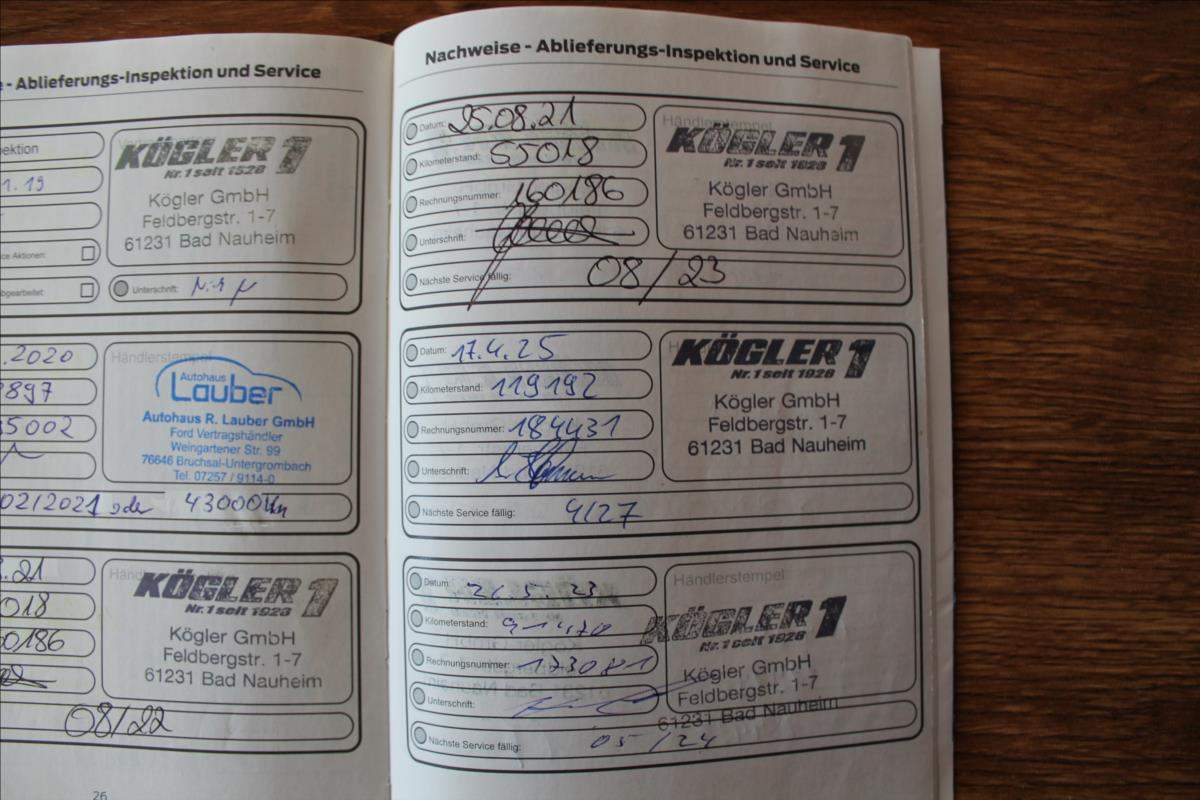 - Ablieferungs-Inspektion und Service
KÖGLER 1
Nr. 1 seit 1928
Kögler GmbH
Feldbergstr. 1-7
61231 Bad Nauheim
Unterschrift:
.2020
Händlerstempel
Autohaus
Lauber
Autohaus R. Lauber GmbH
Ford Vertragshändler
Weingartener Str. 99
76646 Bruchsal-Untergrombach
Tel. 07257 / 9114-0
02/2021 oder 43000 Km
.21
018
0186
KÖGLER 1
Nr. 1 seit 1928
Kögler GmbH
Feldbergstr. 1-7
61231 Bad Nauheim
08/22
26
Nachweise - Ablieferungs-Inspektion und Service
Datum: 25.08.21
Kilometerstand: 55018
Rechnungsnummer: 160186
Unterschrift:
Nächste Service fällig: 08/23
Händlerstempel
KÖGLER 1
Nr. 1 seit 1928
Kögler GmbH
Feldbergstr. 1-7
61231 Bad Nauheim
Datum: 17.4.25
Kilometerstand: 119192
Rechnungsnummer: 184431
Unterschrift:
Nächste Service fällig: 4/27
KÖGLER 1
Nr. 1 seit 1928
Kögler GmbH
Feldbergstr. 1-7
61231 Bad Nauheim
Datum:
Kilometerstand: 91470
Rechnungsnummer: 173081
Unterschrift:
Nächste Service fällig: 05/24
Händlerstempel
KÖGLER 1
Nr. 1 seit 1928
Kögler GmbH
Feldbergstr. 1-7
61231 Bad Nauheim